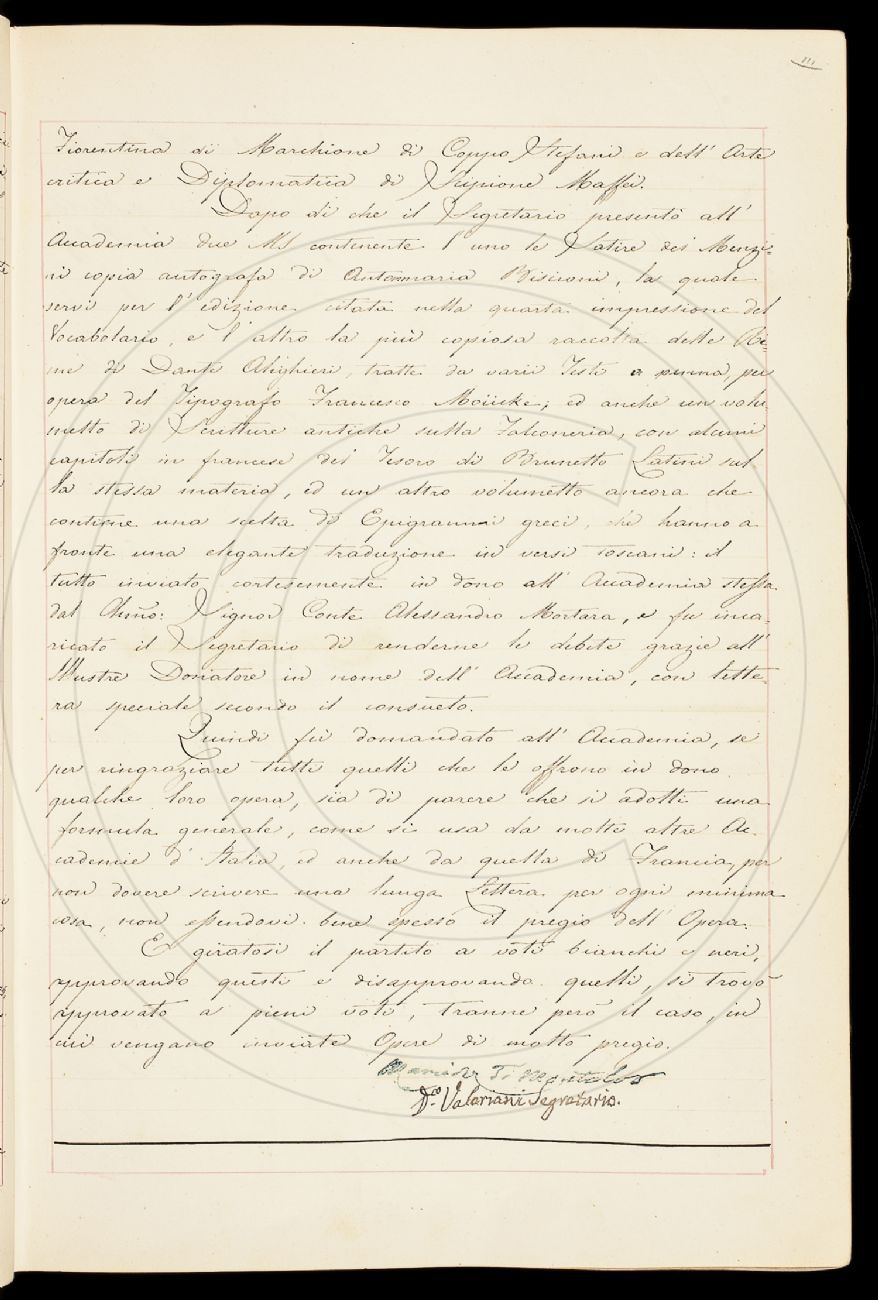 111
Fiorentina di Marchione di Coppo Stefani e dell' Arte
critica e Diplomatica di Scipione Maffei.
Dopo di che il Segretario presentò all'
Accademia due MS. contenente l'uno le Satire del Menzi=
ni copia autografa di Antonmaria Biscioni, la quale
servì per l'edizione citata nella quarta impressione del
Vocabolario, e l'altro la più copiosa raccolta delle Ri=
me di Dante Alighieri, tratte da varii Testi a penna, per
opera del Tipografo Francesco Moücke; ed anche un volu
metto di Scritture antiche sulla Falconeria, con alcuni
capitoli in francese del Tesoro di Brunetto Latini sul
la stessa materia, ed un altro volumetto ancora che
contiene una scelta di Epigrammi greci, che hanno a
fronte una elegante traduzione in versi toscani: il
tutto inviato cortesemente in dono all' Accademia stessa
dal Chmo: Signor Conte Alessandro Mortara, e fu inca=
ricato il Segretario di renderne le debite grazie all'
Illustre Donatore in nome dell' Accademia, con lette=
ra speciale secondo il consueto.
Quindi fù domandato all' Accademia, se
per ringraziare tutti quelli che le offrono in dono
qualche loro opera, sia di parere che si adotti una
formula generale, come si usa da molte altre Ac=
cademie d'Italia, ed anche da quella di Francia, per
non dovere scrivere una lunga Lettera per ogni minima
cosa, non essendovi bene spesso il pregio dell' Opera.
E giratosi il partito a voti bianchi e neri,
approvando questi e disapprovando quelli, si trovò
approvato a pieni voti, tranne però il caso, in
cui vengano inviate Opere di molto pregio.
Dco. Valeriani Segretario.